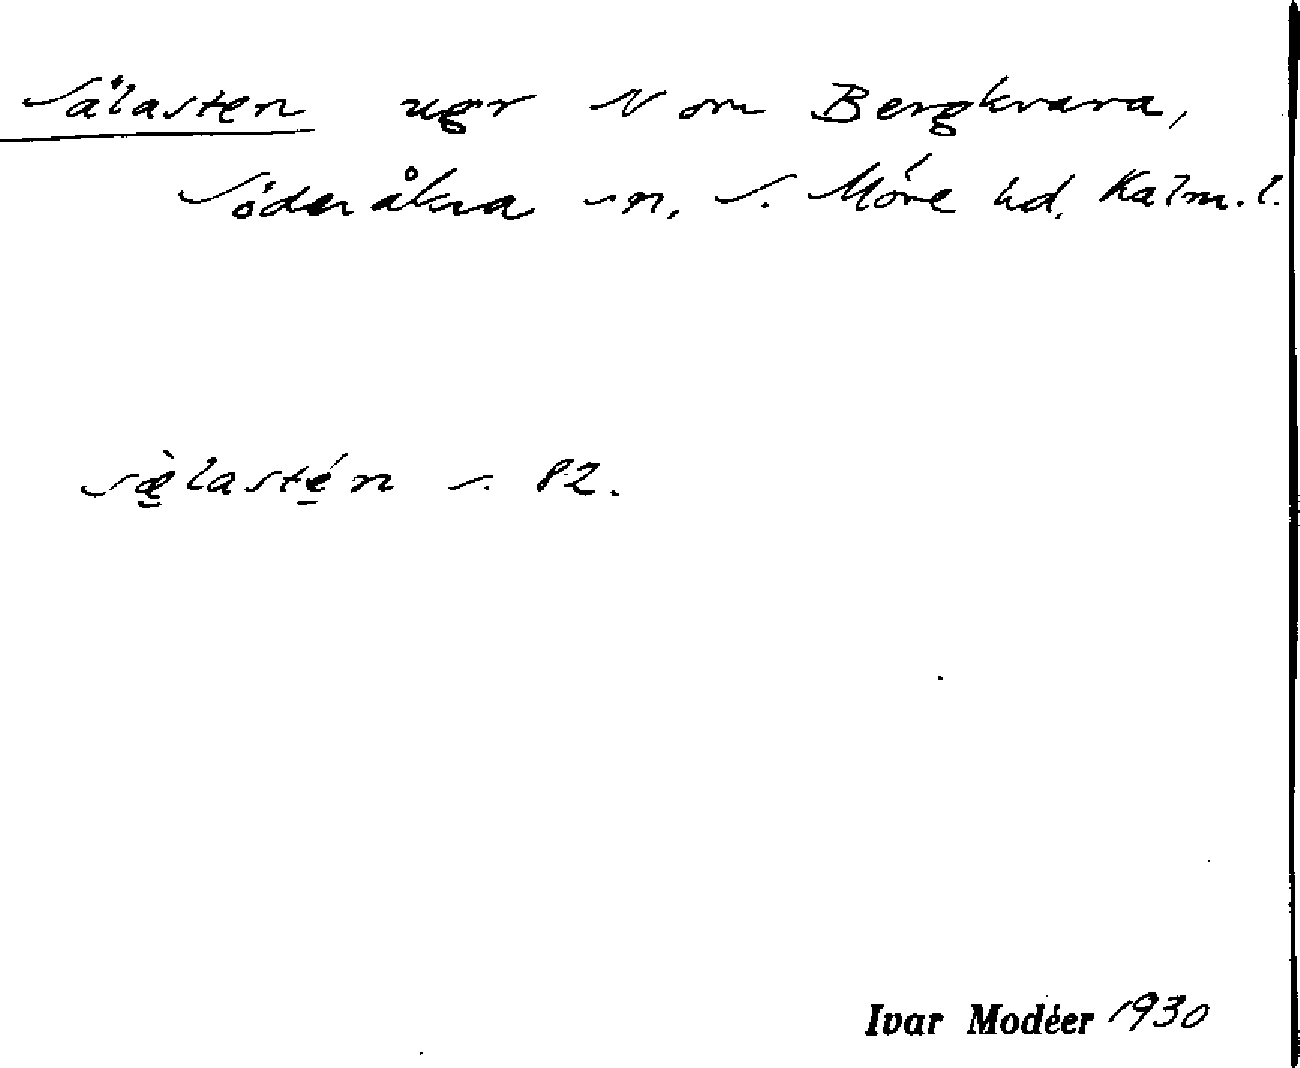 Sälasten ugr N om Bergkvara,
Söderåkra sn, S. Möre hd, Kalm. l.
sæ̀lastén s. 82.
Ivar Modéer 1930